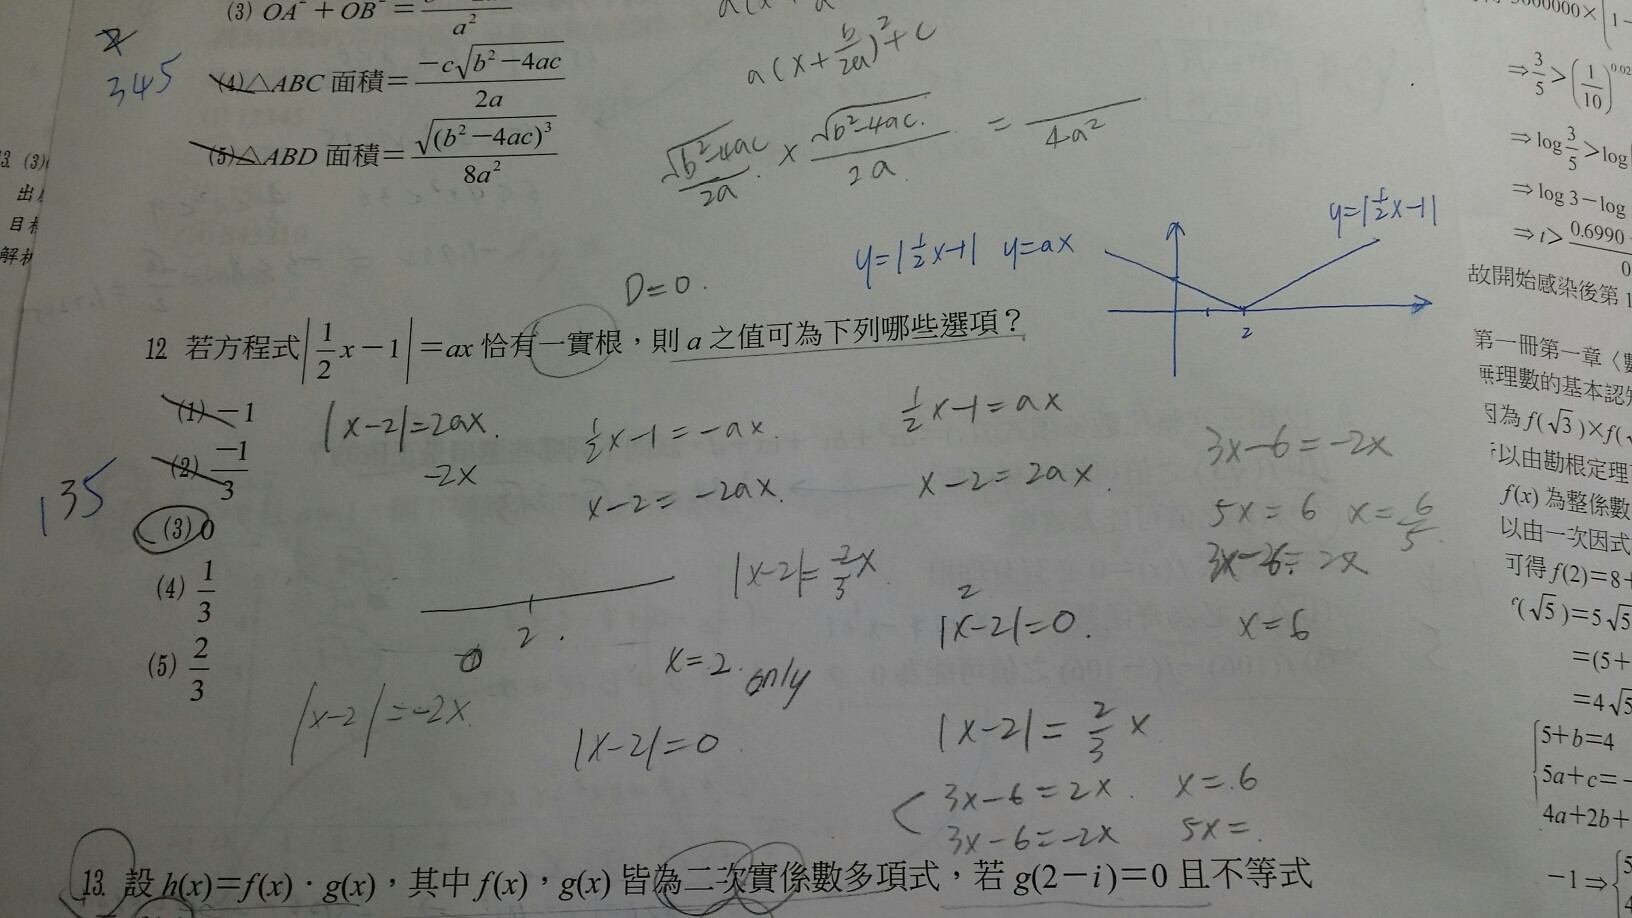 (4)△ABC 面積=\frac{-c\sqrt{b²-4ac}}{2a}
(5)△ABD 面積=\frac{\sqrt{(b²-4ac)³}}{8a²}
345
a(x+\frac{b}{2a})²+c
\frac{\sqrt{b²-4ac}}{2a} × \frac{\sqrt{b²-4ac}}{2a} = \frac{}{4a²}
y=|\frac{1}{2}x-1| y=ax
y=|\frac{1}{2}x-1|
2
D=0.
12 若方程式|\frac{1}{2}x-1|=ax 恰有一實根，則 a 之值可為下列哪些選項？
(1) -1
(2) \frac{-1}{3}
(3) 0
(4) \frac{1}{3}
(5) \frac{2}{3}
135
|x-2|=2ax.
-2x
\frac{1}{2}x-1=-ax.
x-2=-2ax.
\frac{1}{2}x-1=ax
x-2=2ax.
3x-6=-2x
5x=6 x=\frac{6}{5}.
x=6
|x-2|=\frac{2}{3}x.
2
|x-2|=0.
2.
0
x=2. only
|x-2|=-2x.
|x-2|=0
|x-2|=\frac{2}{3}x
3x-6=2x. x=.6
3x-6=-2x 5x=.
13. 設 h(x)=f(x)·g(x)，其中 f(x)，g(x) 皆為二次實係數多項式，若 g(2-i)=0 且不等式
⇒\frac{3}{5}>(\frac{1}{10})
⇒log\frac{3}{5}>log
⇒log 3-log
⇒t>\frac{0.6990
故開始感染後第 1
第一冊第一章〈數
無理數的基本認
因為 f(√3)×f(
以由勘根定理
f(x) 為整係數
以由一次因式
可得 f(2)=8+
(√5)=5√5
=(5+
=4√5
5+b=4
5a+c=-
4a+2b+
-1⇒